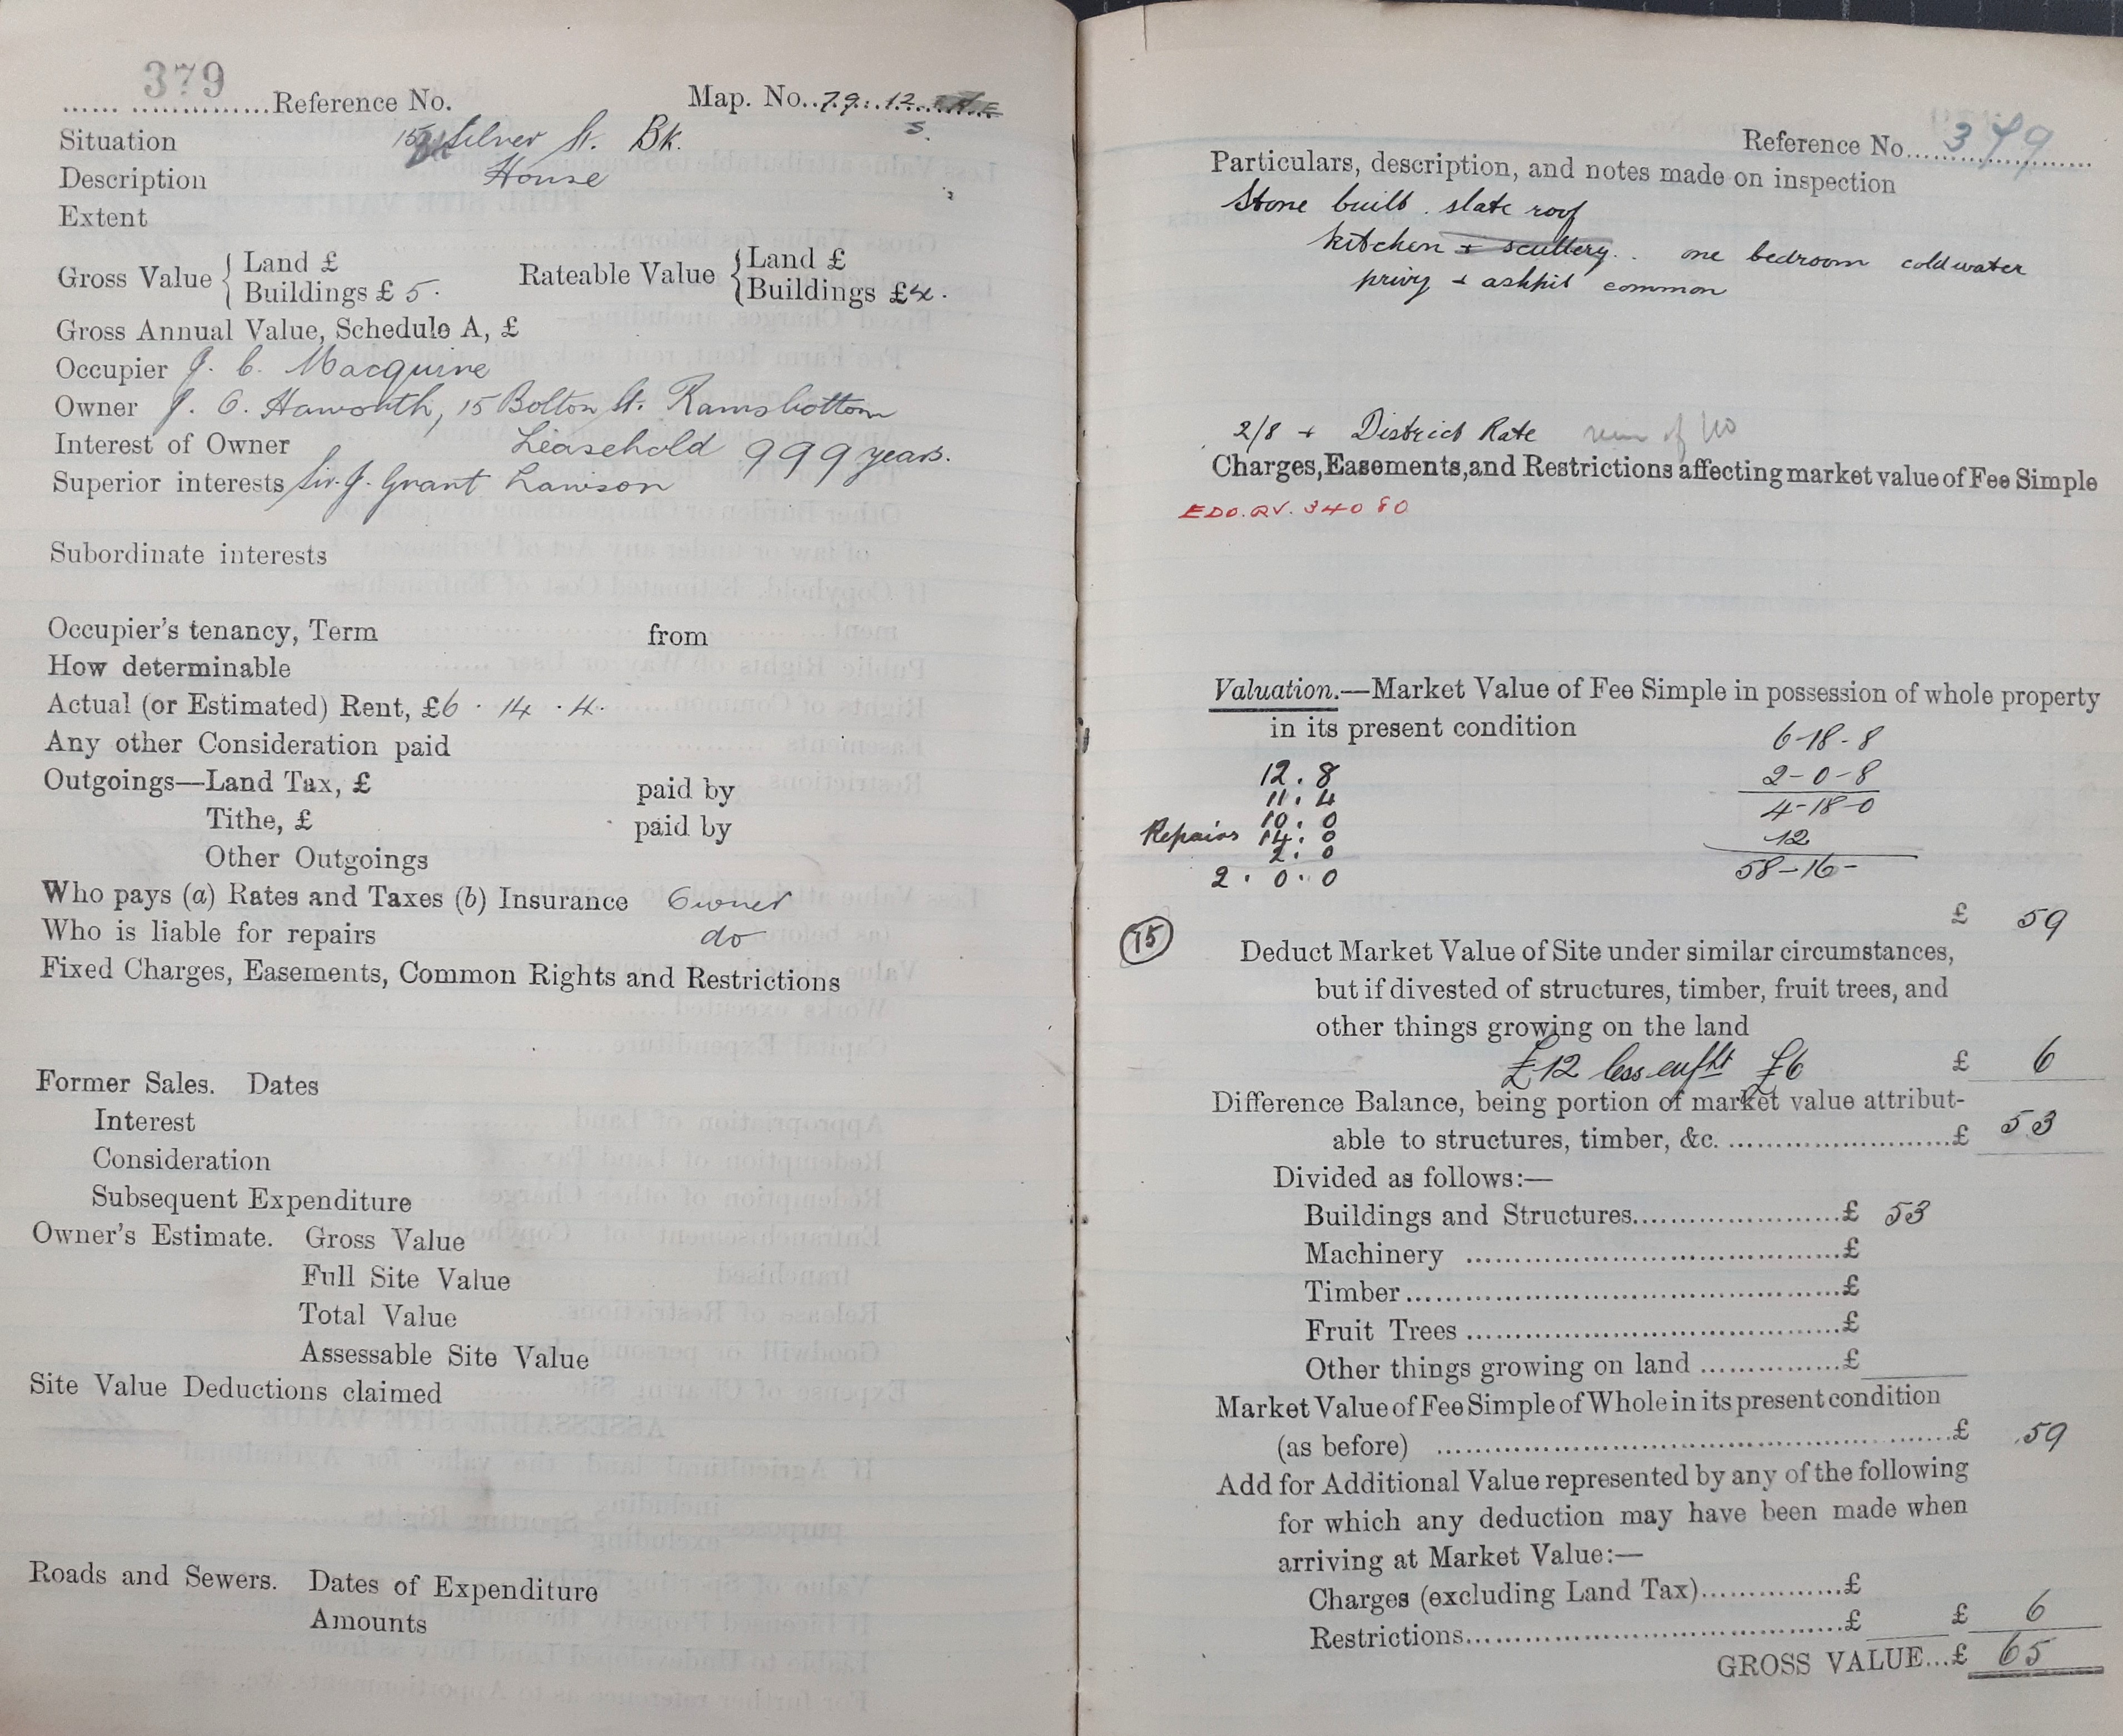 379
Reference No.
Map. No. 79. 12.
S.
Situation 15 Silver St. Bk.
Description House
Extent
Gross Value { Land £
Buildings £ 5.
Rateable Value { Land £
Buildings £4.
Gross Annual Value, Schedule A, £
Occupier J. C. Macquire
Owner J. O. Haworth, 15 Bolton St. Ramsbottom
Interest of Owner Leasehold 999 years.
Superior interests Sir J. Grant Lawson
Subordinate interests
Occupier's tenancy, Term from
How determinable
Actual (or Estimated) Rent, £6 . 14 . 4.
Any other Consideration paid
Outgoings—Land Tax, £ paid by
Tithe, £ paid by
Other Outgoings
Who pays (a) Rates and Taxes (b) Insurance Owner
Who is liable for repairs do
Fixed Charges, Easements, Common Rights and Restrictions
Former Sales. Dates
Interest
Consideration
Subsequent Expenditure
Owner's Estimate. Gross Value
Full Site Value
Total Value
Assessable Site Value
Site Value Deductions claimed
Roads and Sewers. Dates of Expenditure
Amounts
Reference No. 379
Particulars, description, and notes made on inspection
Stone built. slate roof
kitchen + scullery. one bedroom cold water
privy + ashpit common
2/8 + District Rate
Charges, Easements, and Restrictions affecting market value of Fee Simple
EDO. RV. 340 80
Valuation.—Market Value of Fee Simple in possession of whole property
in its present condition
6-18-8
12. 8
2-0-8
11. 4
4-18-0
10. 0
Repairs 14. 0
12
2. 0
58-16-
2 . 0 . 0
£ 59
15
Deduct Market Value of Site under similar circumstances,
but if divested of structures, timber, fruit trees, and
other things growing on the land
£12 less £6 £ 6
Difference Balance, being portion of market value attribut-
able to structures, timber, &c. £ 53
Divided as follows:—
Buildings and Structures £ 53
Machinery £
Timber £
Fruit Trees £
Other things growing on land £
Market Value of Fee Simple of Whole in its present condition
(as before) £ 59
Add for Additional Value represented by any of the following
for which any deduction may have been made when
arriving at Market Value:—
Charges (excluding Land Tax) £
Restrictions £ £ 6
GROSS VALUE...£ 65